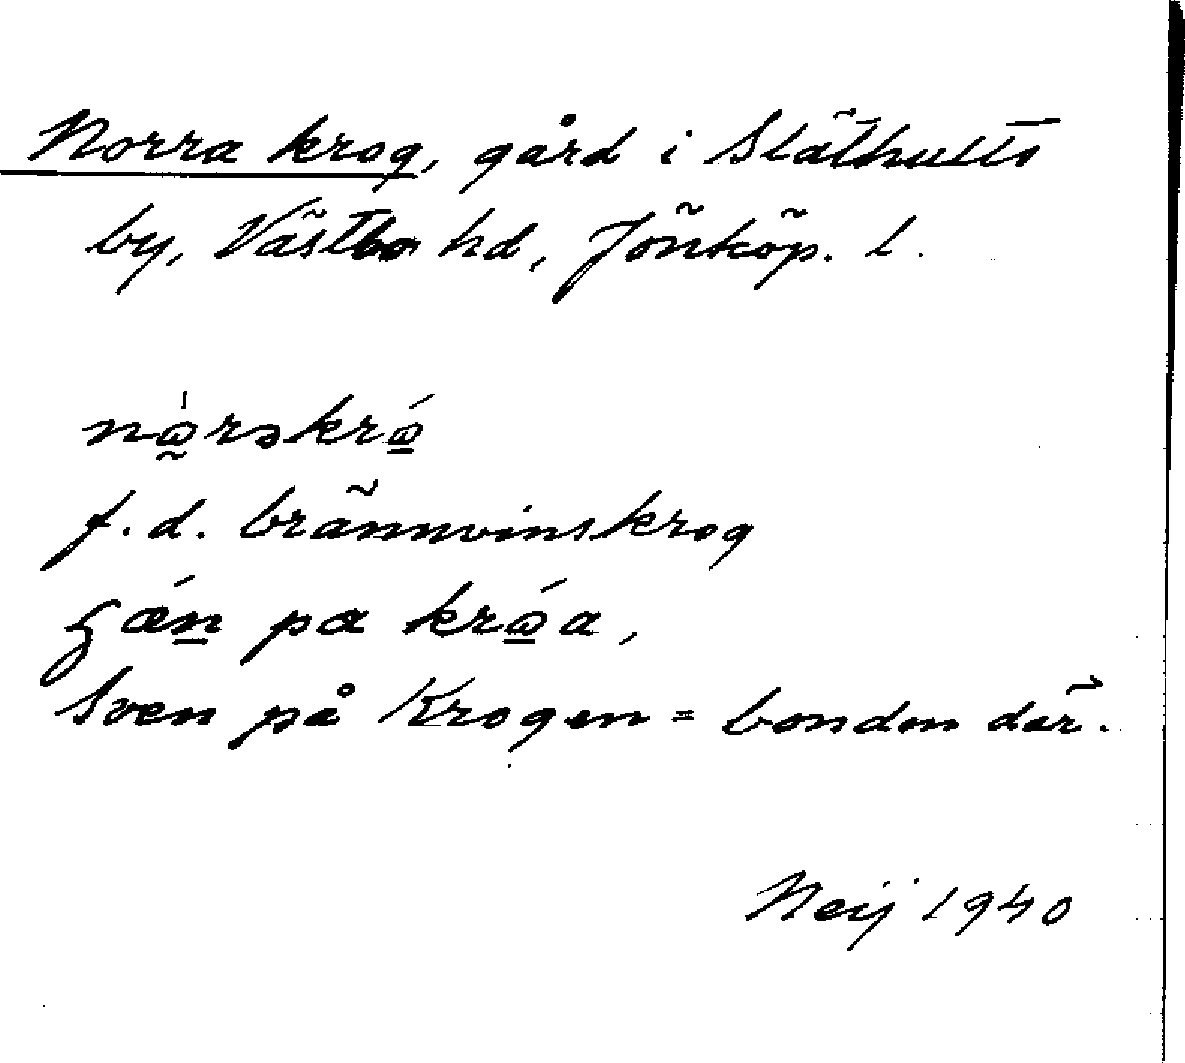 Norra krog, gård i Släthults
by, Västbo hd, Jönköp. l.
nọ̀rəkrọ́
f.d. brännvinskrog
på krọ́a,
Sven på Krogen = bonden där.
Neij 1940